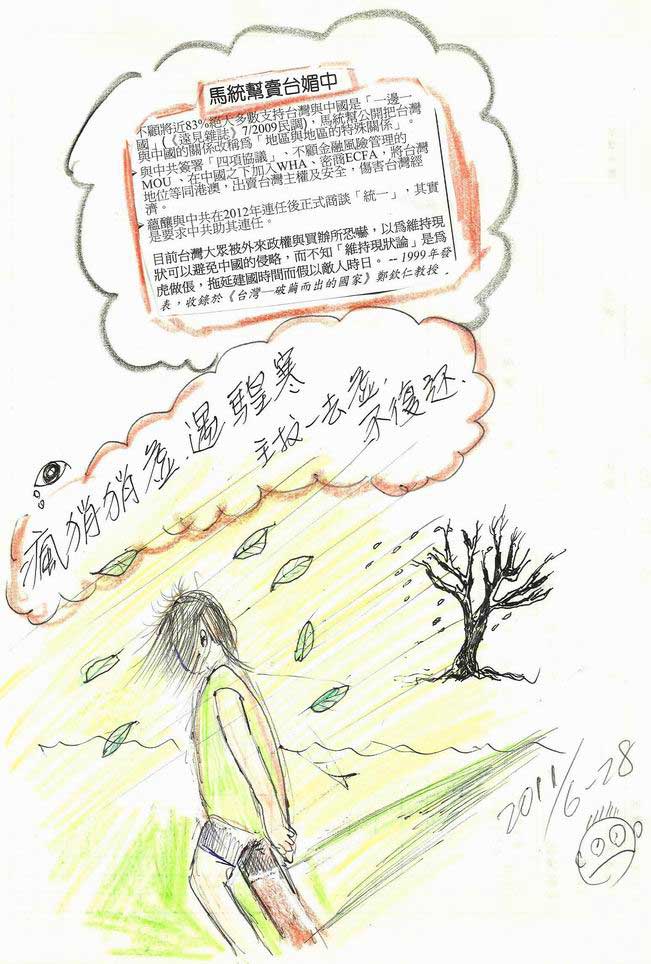 馬統幫賣台媚中
不顧將近83%絕大多數支持台灣與中國是「一邊一
國」(《遠見雜誌》7/2009民調)，馬統幫公開把台灣
與中國的關係改稱爲「地區與地區的特殊關係」。
與中共簽署「四項協議」、不顧金融風險管理的
MOU、在中國之下加入WHA、密商ECFA，將台灣
地位等同港澳，出賣台灣主權及安全，傷害台灣經
濟。
蘊釀與中共在2012年連任後正式商談「統一」，其實
是要求中共助其連任。
目前台灣大眾被外來政權與買辦所恐嚇，以爲維持現
狀可以避免中國的侵略，而不知「維持現狀論」是爲
虎做倀，拖延建國時間而假以敵人時日。-- 1999年發
表，收錄於《台灣—破繭而出的國家》鄭欽仁教授
瘋狷狷兮 馬皇寒
主权一去兮,
不復还.
2011/6-28